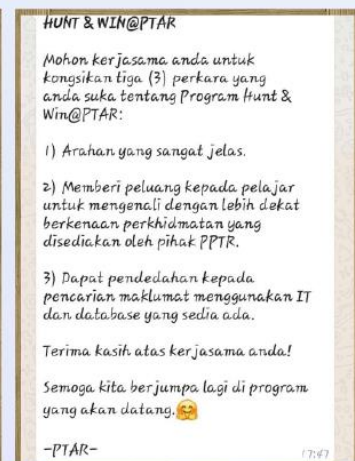 HUNT & WIN@PTAR
Mohon kerjasama anda untuk
kongsikan tiga (3) perkara yang
anda suka tentang Program Hunt &
Win@PTAR:
1) Arahan yang sangat jelas.
2) Memberi peluang kepada pelajar
untuk mengenali dengan lebih dekat
berkenaan perkhidmatan yang
disediakan oleh pihak PPTR.
3) Dapat pendedahan kepada
pencarian maklumat menggunakan IT
dan database yang sedia ada.
Terima kasih atas kerjasama anda!
Semoga kita berjumpa lagi di program
yang akan datang.🤗
-PTAR-
17:47